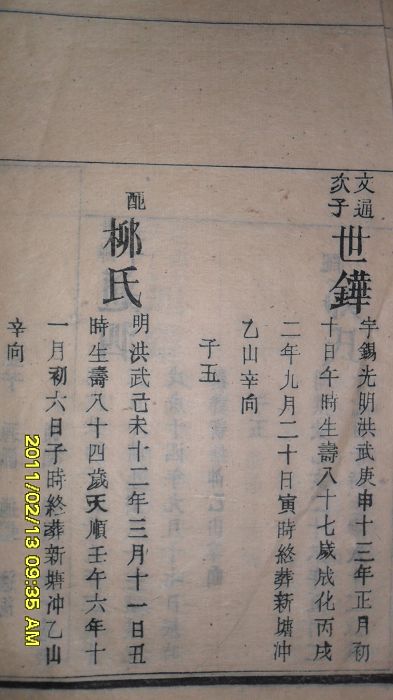 文通
次子
世鏵
字錫光明洪武庚申十三年正月初
十日午時生壽八十七歲成化丙戌
二年九月二十日寅時終葬新塘沖
乙山辛向
子五
配
柳氏
明洪武己未十二年三月十一日丑
時生壽八十四歲天順壬午六年十
一月初六日子時終葬新塘沖乙山
辛向
2011/02/13 09:35 AM